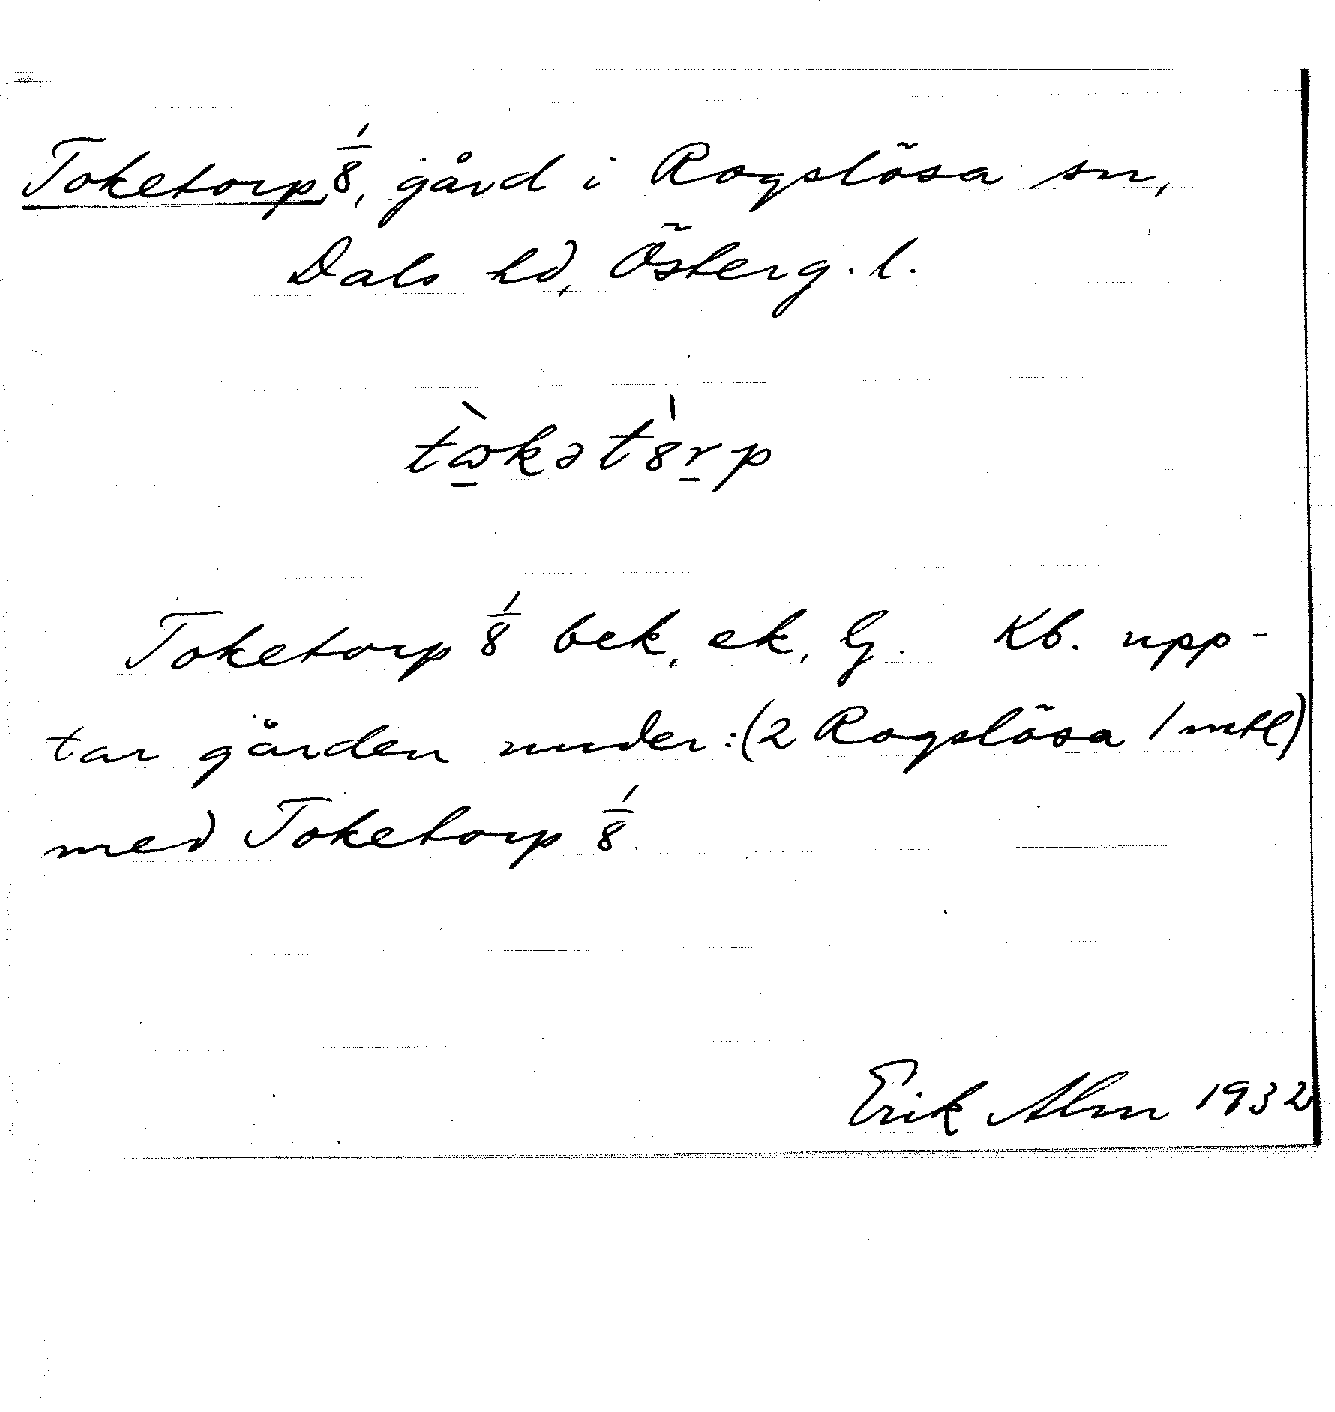 Toketorp 1/8, gård i Rogslösa sn,
Dals hd, Österg. l.
tὼkətˈ8r̲p
Toketorp 1/8 bek, ek, Lj. Kb. upp-
tar gården under: (2 Rogslösa 1 mtl)
med Toketorp 1/8.
Erik Alm 1932